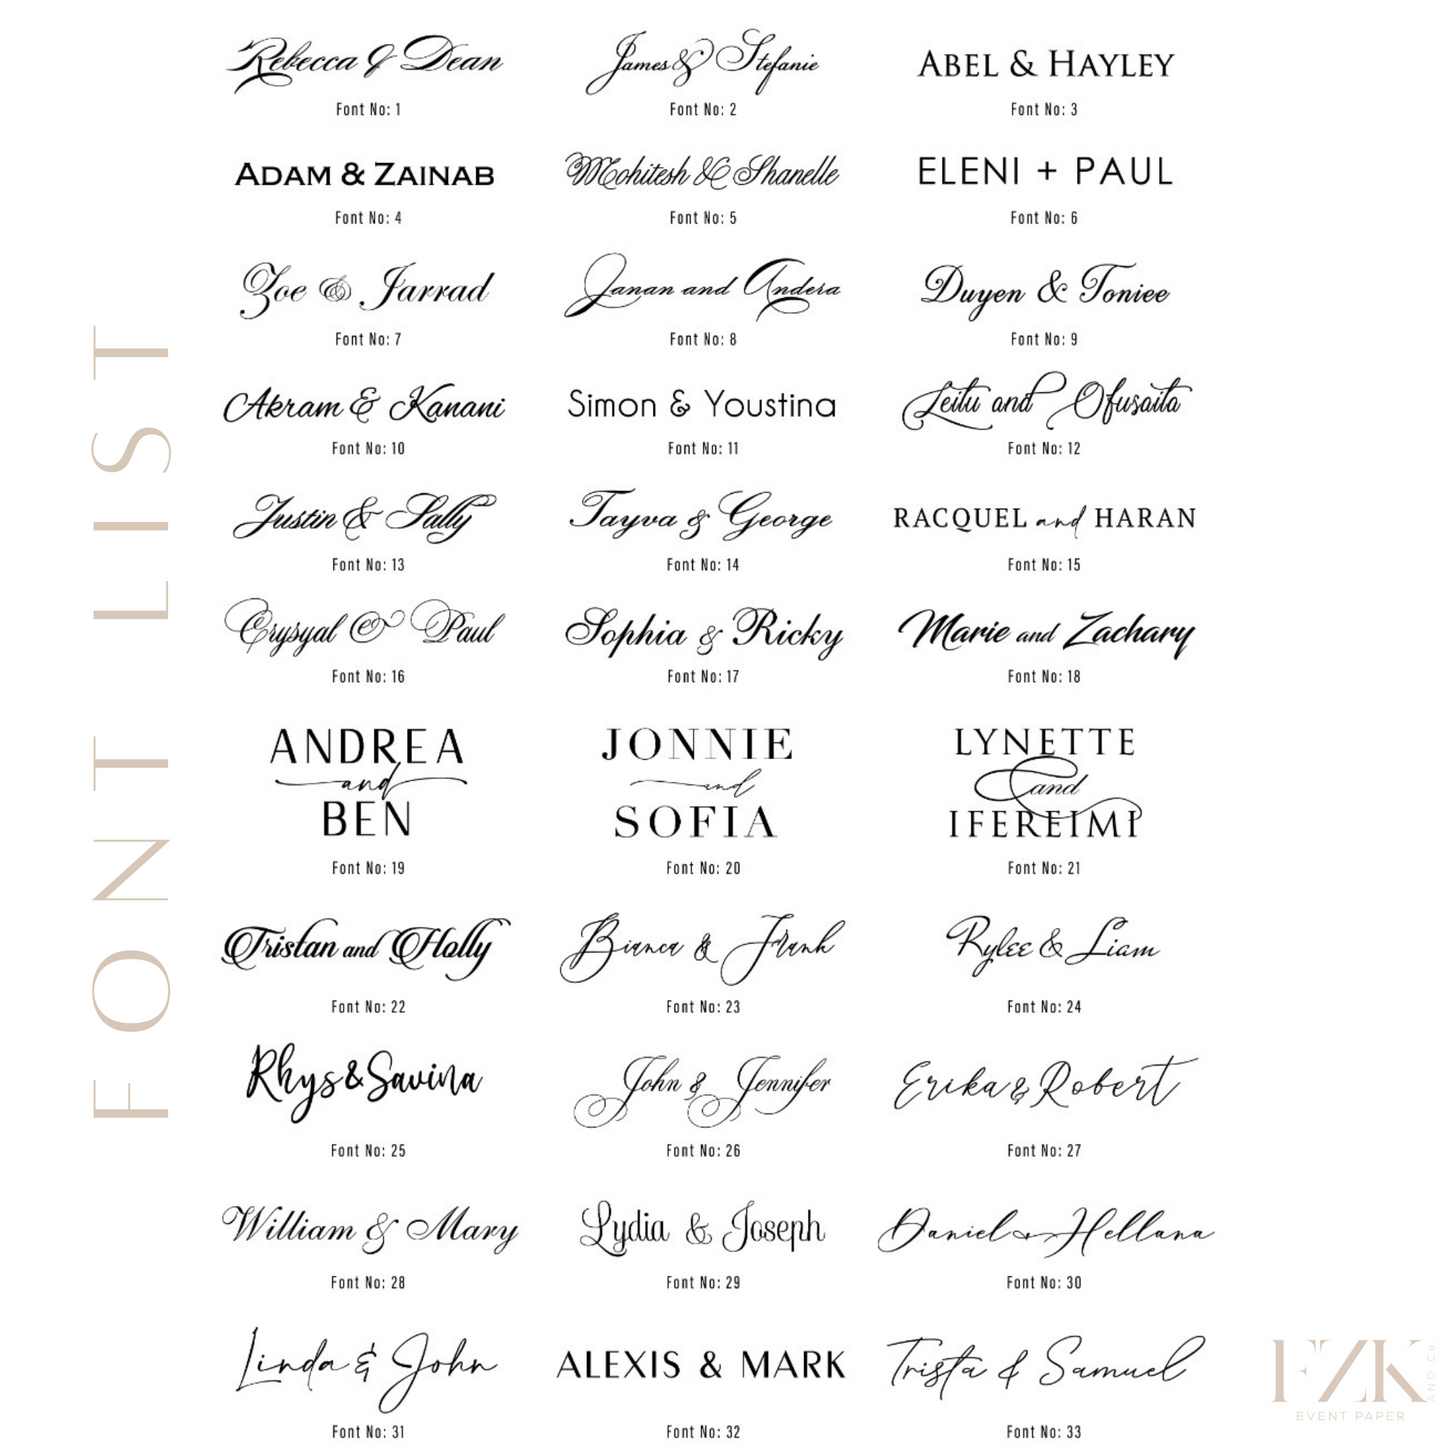 FONT LIST
Rebecca & Dean
Font No: 1
James & Stefanie
Font No: 2
ABEL & HAYLEY
Font No: 3
ADAM & ZAINAB
Font No: 4
Mohitesh & Shanelle
Font No: 5
ELENI + PAUL
Font No: 6
Zoe & Jarrad
Font No: 7
Janan and Andera
Font No: 8
Duyen & Toniee
Font No: 9
Akram & Kanani
Font No: 10
Simon & Youstina
Font No: 11
Leitu and Ofusaita
Font No: 12
Justin & Sally
Font No: 13
Tayva & George
Font No: 14
RACQUEL and HARAN
Font No: 15
Crysyal & Paul
Font No: 16
Sophia & Ricky
Font No: 17
Marie and Zachary
Font No: 18
ANDREA
and
BEN
Font No: 19
JONNIE
and
SOFIA
Font No: 20
LYNETTE
and
IFEREIMI
Font No: 21
Tristan and Holly
Font No: 22
Bianca & Frank
Font No: 23
Rylee & Liam
Font No: 24
Rhys & Savina
Font No: 25
John & Jennifer
Font No: 26
Erika & Robert
Font No: 27
William & Mary
Font No: 28
Lydia & Joseph
Font No: 29
Daniel & Hellana
Font No: 30
Linda & John
Font No: 31
ALEXIS & MARK
Font No: 32
Trista & Samuel
Font No: 33
FZK
AND Co
EVENT PAPER